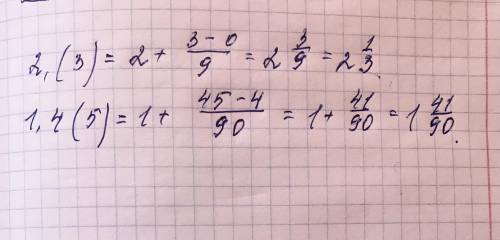 2,(3) = 2 + \frac{3-0}{9} = 2 \frac{3}{9} = 2 \frac{1}{3}.
1,4(5) = 1 + \frac{45-4}{90} = 1 + \frac{41}{90} = 1 \frac{41}{90}.